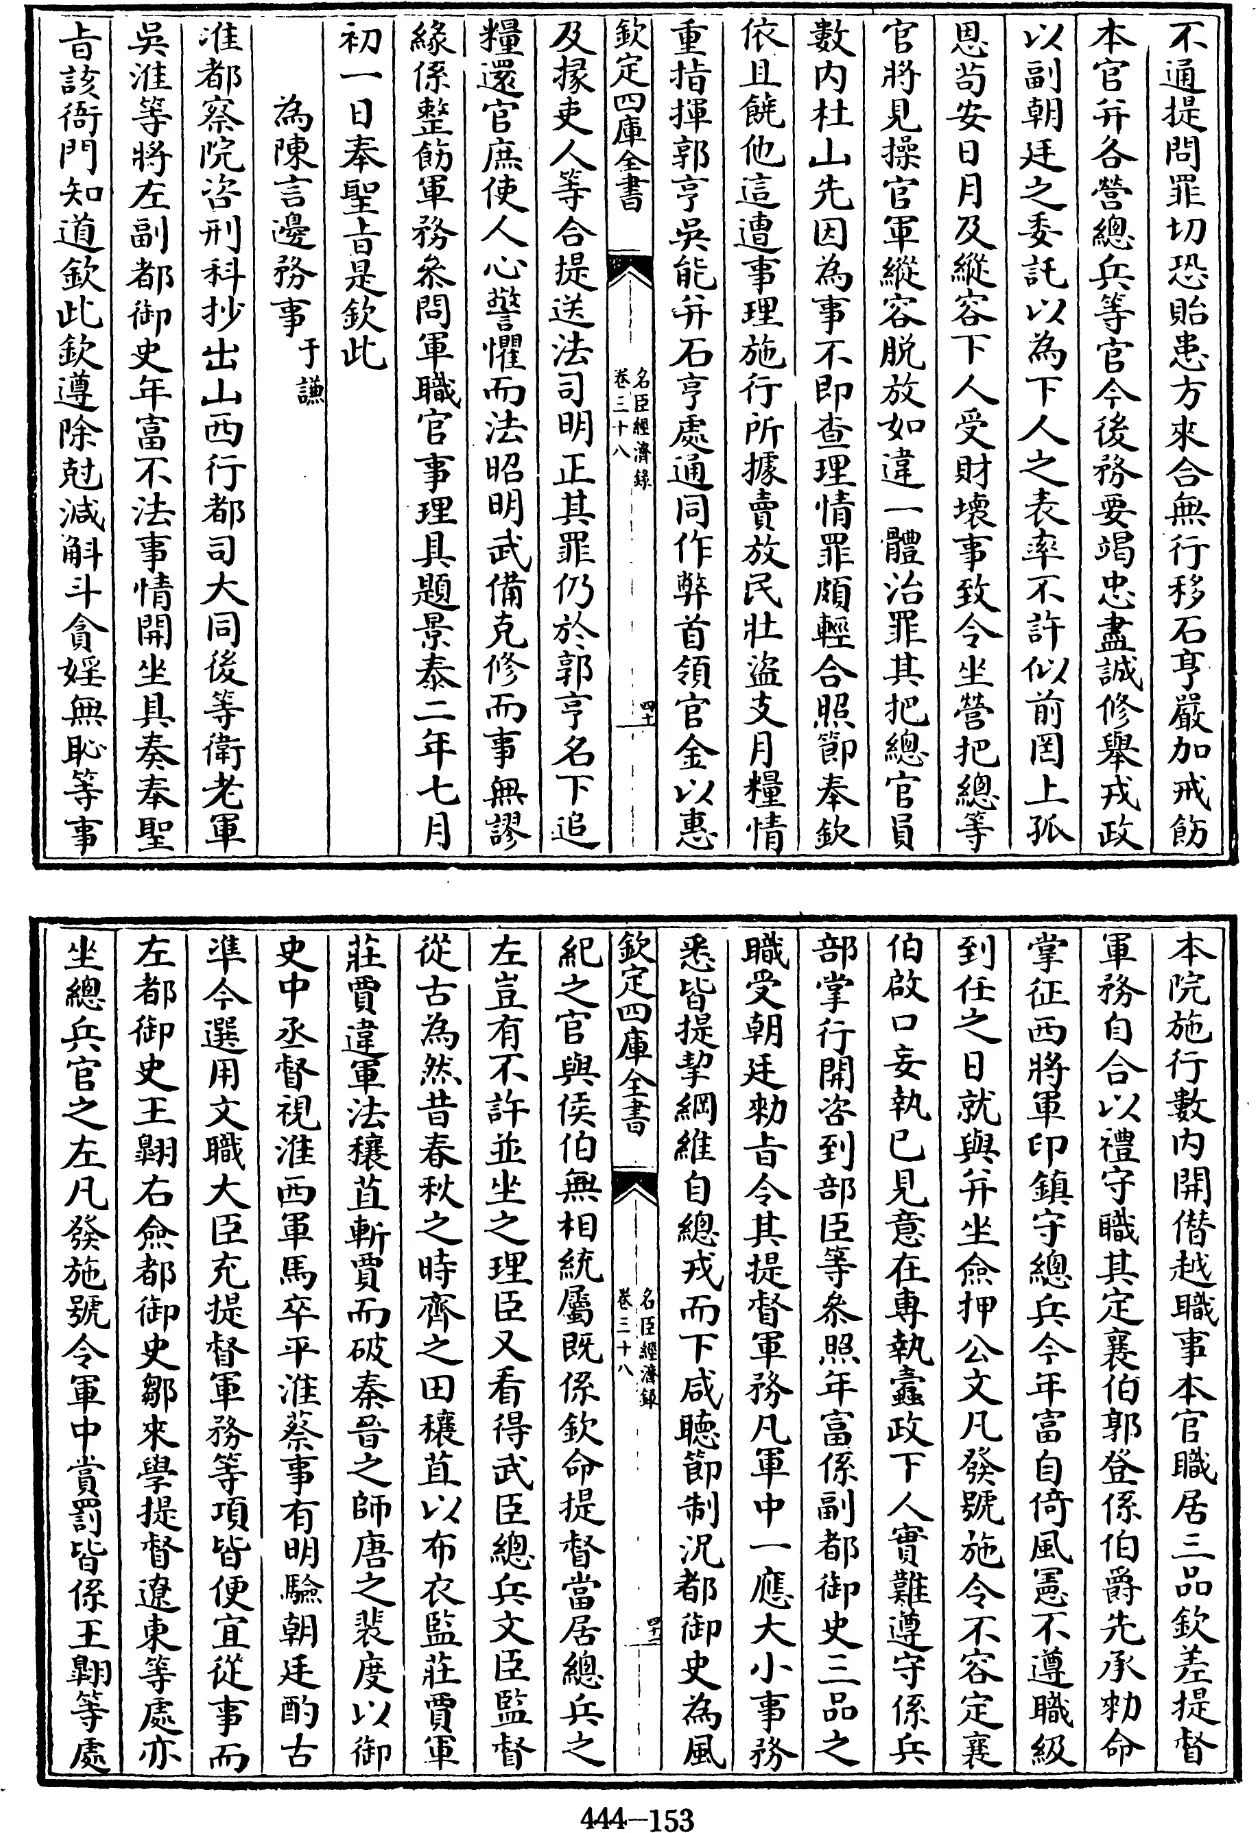 不通提問罪切恐貽患方來合無行移石亨嚴加戒飭
本官并各營總兵等官今後務要竭忠盡誠修舉戎政
以副朝廷之委託以為下人之表率不許似前罔上孤
恩茍安日月及縱容下人受財壞事致令坐營把總等
官將見操官軍縱容脱放如違一體治罪其把總官員
數内杜山先因為事不即查理情罪頗輕合照節奉欽
依且饒他這遭事理施行所據賣放民壯盜支月糧情
重指揮郭亨吳能并石亨處通同作弊首領官金以惠
欽定四庫全書
名臣經濟録
卷三十八
四十
及掾吏人等合提送法司明正其罪仍於郭亨名下追
糧還官庶使人心警懼而法昭明武備克修而事無謬
緣係整飭軍務叅問軍職官事理具題景泰二年七月
初一日奉聖旨是欽此
為陳言邊務事 于謙
准都察院咨刑科抄出山西行都司大同後等衛老軍
吳淮等將左副都御史年富不法事情開坐具奏奉聖
旨該衙門知道欽此欽遵除尅減斛斗貪婬無恥等事
本院施行數内開僭越職事本官職居三品欽差提督
軍務自合以禮守職其定襄伯郭登係伯爵先承勅命
掌征西將軍印鎮守總兵今年富自倚風憲不遵職級
到任之日就與并坐僉押公文凡發號施令不容定襄
伯啟口妄執已見意在專執蠧政下人實難遵守係兵
部掌行開咨到部臣等叅照年富係副都御史三品之
職受朝廷勅旨令其提督軍務凡軍中一應大小事務
悉皆提挈綱維自總戎而下咸聽節制况都御史為風
欽定四庫全書
名臣經濟録
卷三十八
四十一
紀之官與侯伯無相統屬既係欽命提督當居總兵之
左豈有不許並坐之理臣又看得武臣總兵文臣監督
從古為然昔春秋之時齊之田穰苴以布衣監莊賈軍
莊賈違軍法穰苴斬賈而破秦晉之師唐之裴度以御
史中丞督視淮西軍馬卒平淮蔡事有明驗朝廷酌古
準今選用文職大臣充提督軍務等項皆便宜從事而
左都御史王翺右僉都御史鄒來學提督遼東等處亦
坐總兵官之左凡發施號令軍中賞罰皆係王翺等處
444-153